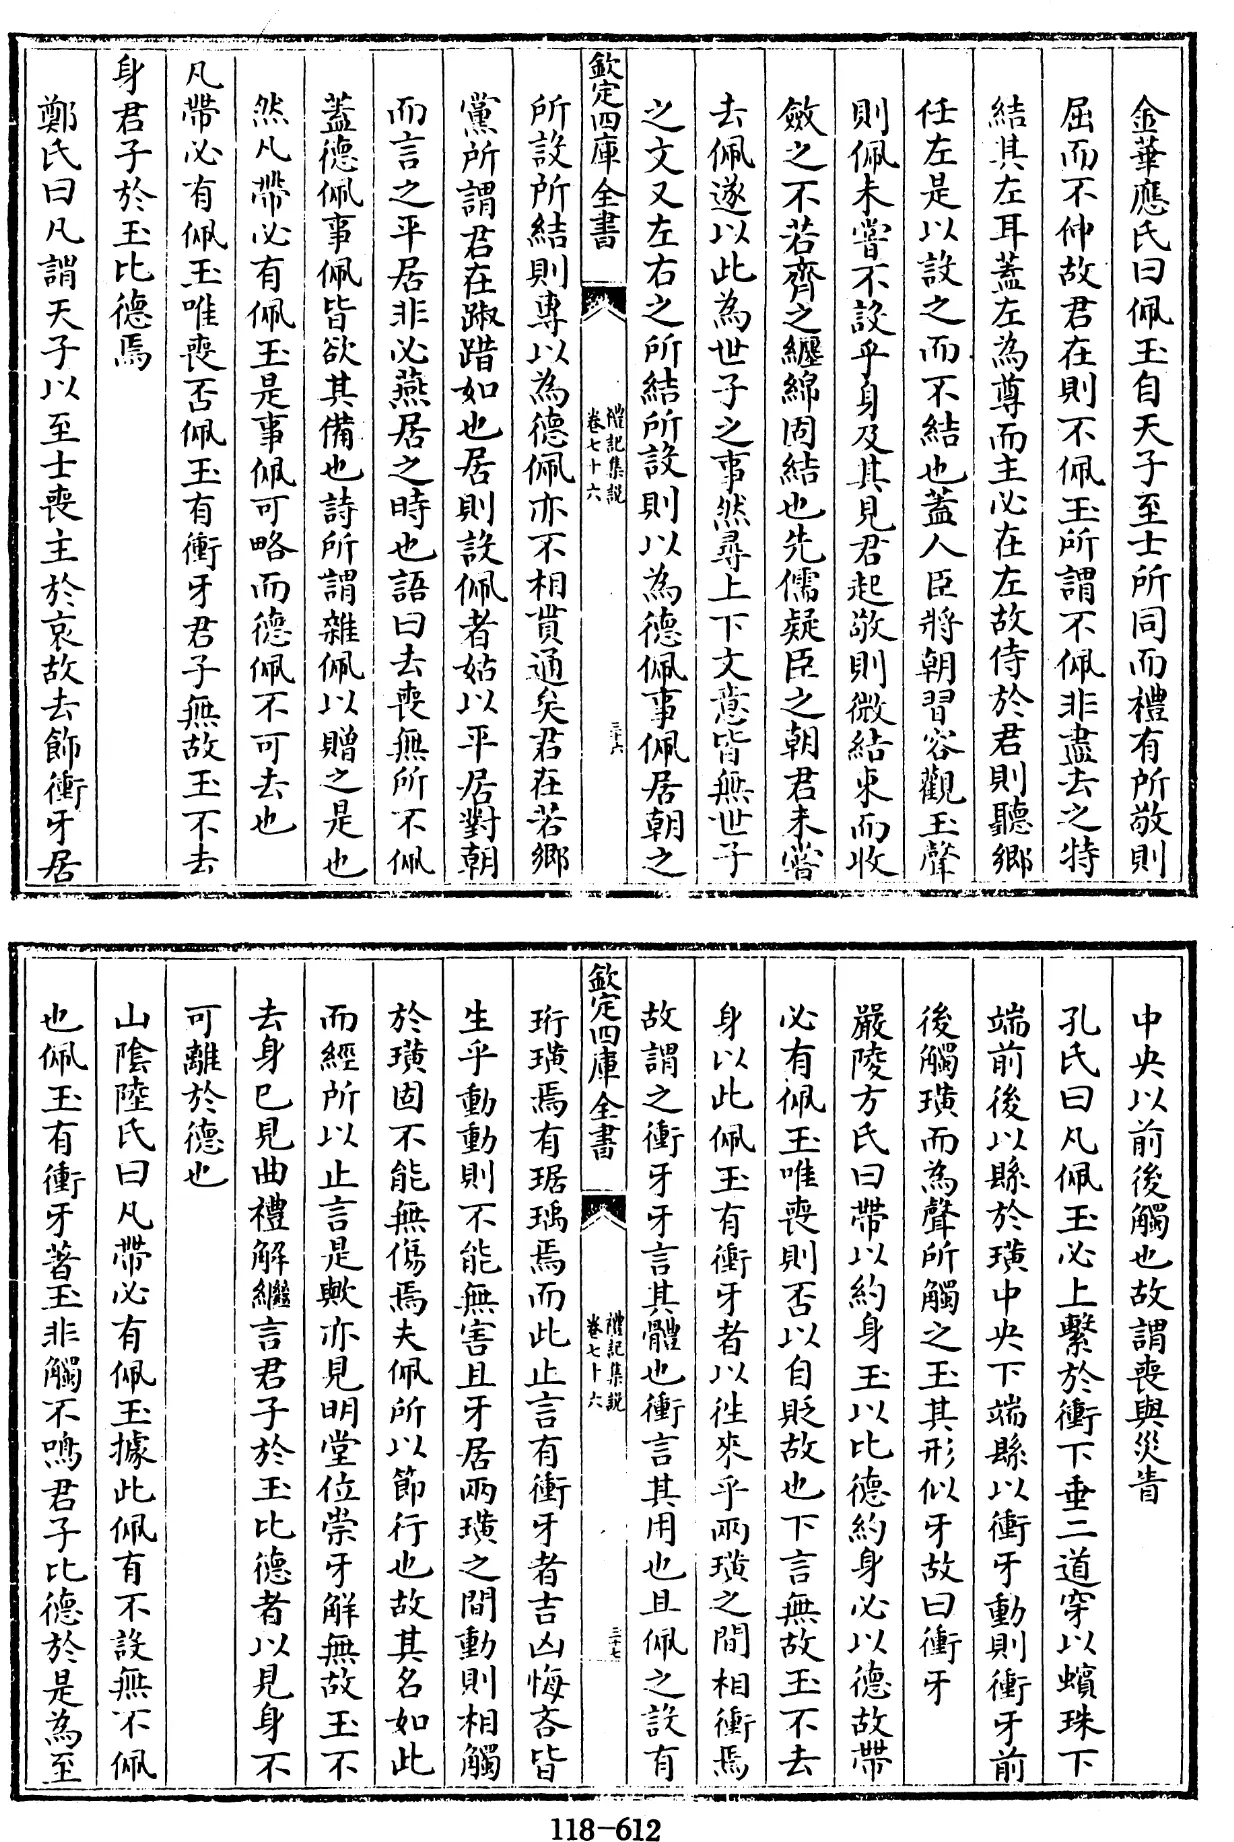 金華應氏曰佩玉自天子至士所同而禮有所敬則
屈而不伸故君在則不佩玉所謂不佩非盡去之特
結其左耳蓋左為尊而主必在左故侍於君則聽鄉
任左是以設之而不結也蓋人臣將朝習容觀玉聲
則佩未嘗不設乎身及其見君起敬則微結束而收
斂之不若齊之纏綿固結也先儒疑臣之朝君未嘗
去佩遂以此為世子之事然尋上下文意皆無世子
之文又左右之所結所設則以為德佩事佩居朝之
欽定四庫全書
禮記集說
卷七十六
三十六
所設所結則專以為德佩亦不相貫通矣君在若鄉
黨所謂君在踧踖如也居則設佩者姑以平居對朝
而言之平居非必燕居之時也語曰去喪無所不佩
蓋德佩事佩皆欲其備也詩所謂雜佩以贈之是也
然凡帶必有佩玉是事佩可略而德佩不可去也
凡帶必有佩玉唯喪否佩玉有衝牙君子無故玉不去
身君子於玉比德焉
鄭氏曰凡謂天子以至士喪主於哀故去飾衝牙居
中央以前後觸也故謂喪與災眚
孔氏曰凡佩玉必上繫於衝下垂二道穿以蠙珠下
端前後以縣於璜中央下端縣以衝牙動則衝牙前
後觸璜而為聲所觸之玉其形似牙故曰衝牙
嚴陵方氏曰帶以約身玉以比德約身必以德故帶
必有佩玉唯喪則否以自貶故也下言無故玉不去
身以此佩玉有衝牙者以往來乎兩璜之間相衝焉
故謂之衝牙牙言其體也衝言其用也且佩之設有
欽定四庫全書
禮記集說
卷七十六
三十七
珩璜焉有琚瑀焉而此止言有衝牙者吉凶悔吝皆
生乎動動則不能無害且牙居兩璜之間動則相觸
於璜固不能無傷焉夫佩所以節行也故其名如此
而經所以止言是歟亦見明堂位崇牙解無故玉不
去身已見曲禮解繼言君子於玉比德者以見身不
可離於德也
山陰陸氏曰凡帶必有佩玉據此佩有不設無不佩
也佩玉有衝牙著玉非觸不鳴君子比德於是為至
118-612